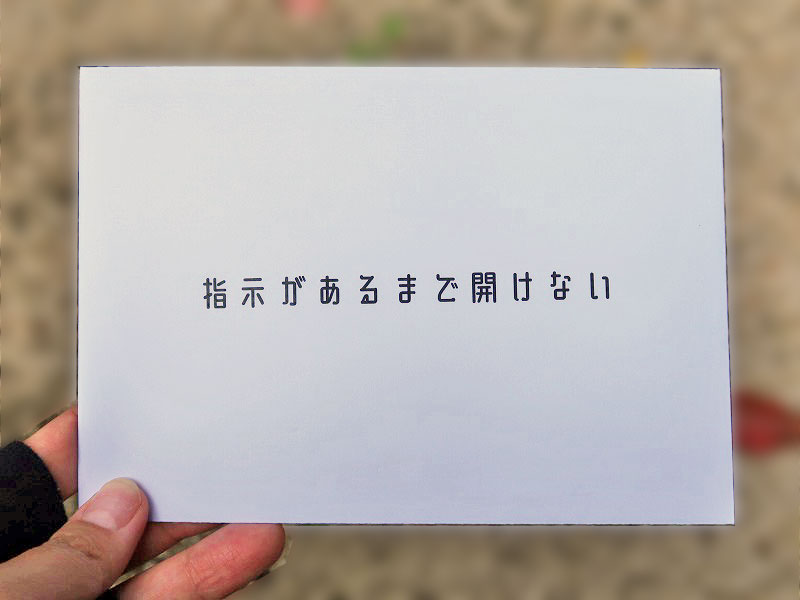 指示があるまで開けない